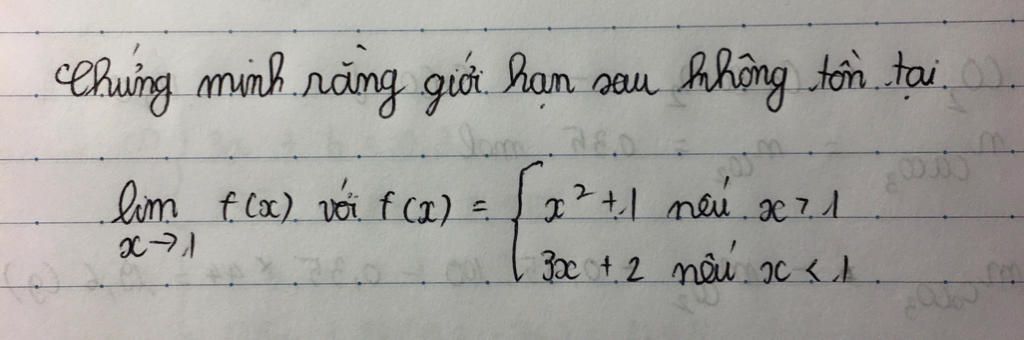 Chứng minh rằng giới hạn sau không tồn tại
lim f(x) với f(x) = { x² + 1 nếu x > 1
x→1
3x + 2 nếu x < 1